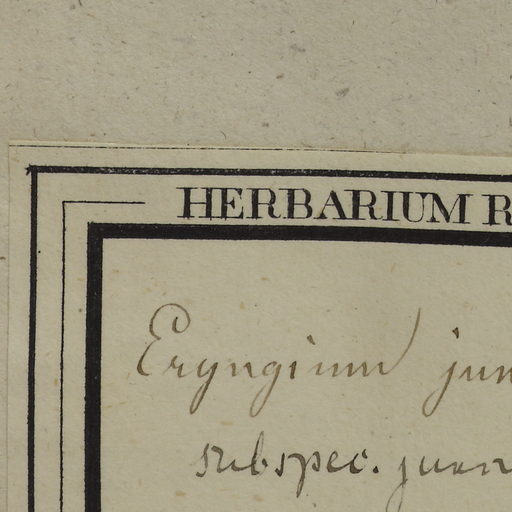 HERBARIUM R
Eryngium jun
subspec. junc